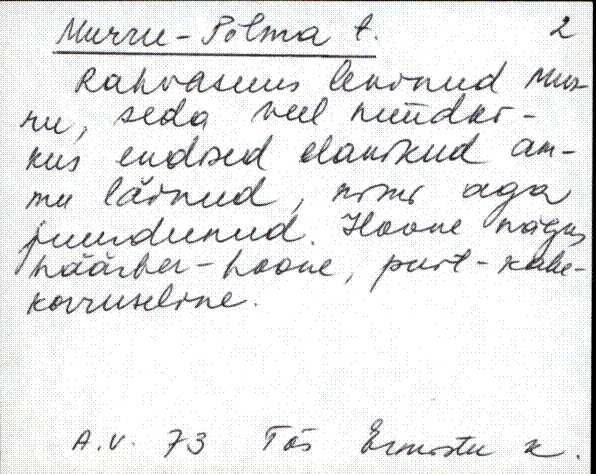 Murru-Põlma t. 2
Rahvasuus levinud Mur-
ru, seda veel nüüdki -
kus endised elanikud am-
mu läinud, nimi aga
juurdunud. Hoone nägus
häärber-hoone, puit-kahe-
korruseline.
A.V. 73 Tõs Ermistu k.